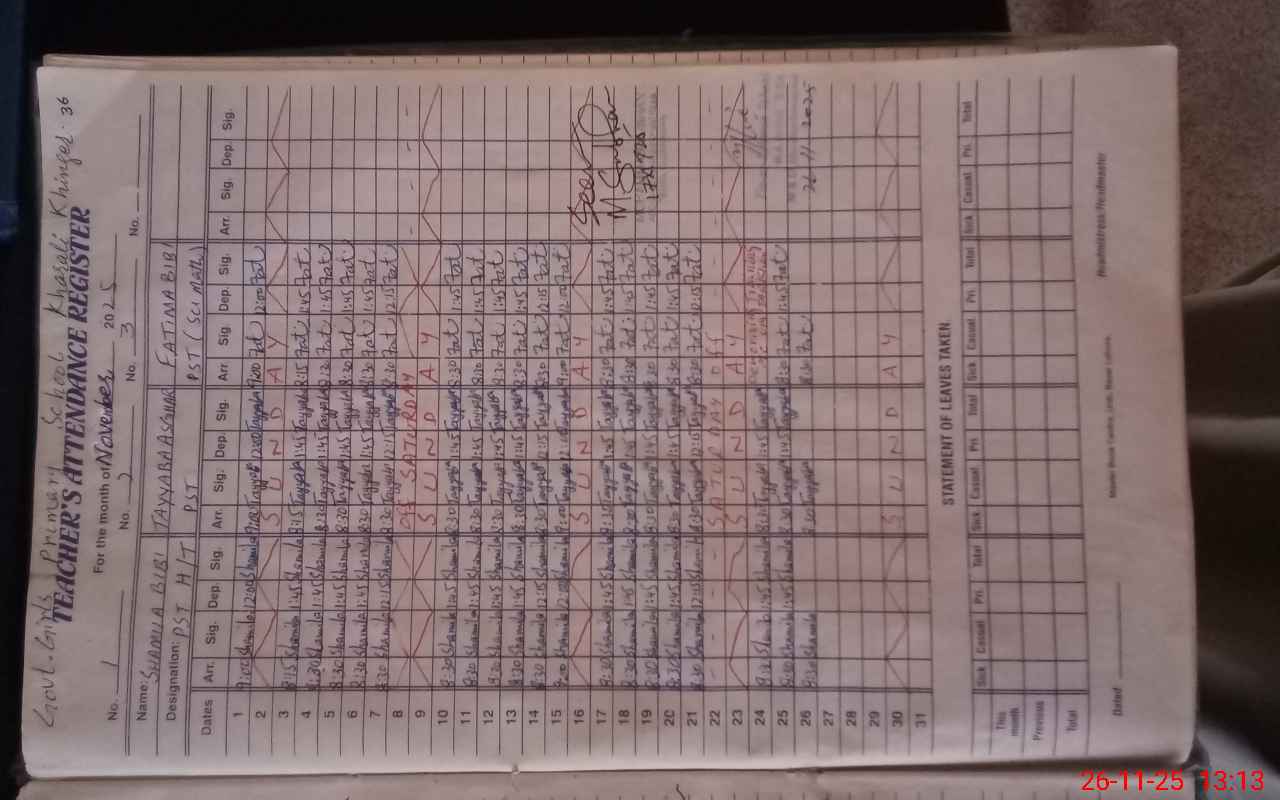 Govt. Girls Primary School Kharali Khinger. 36
TEACHER'S ATTENDANCE REGISTER
For the month of November 2025
No. 1 No. 2 No. 3 No.
Name: SHAMILA BIBI TAYYABA ASGHAR FATIMA BIBI
Designation: PST H/T PST PST (SCI MATH)
Dates Arr. Sig. Dep. Sig. Arr. Sig. Dep. Sig. Arr. Sig. Dep. Sig. Arr. Sig. Dep. Sig.
1 9:00 Shamila 12:00 Shamila 9:00 Tayyaba 12:00 Tayyaba 9:00 Fat 12:00 Fat
2 S U N D A Y
3 8:15 Shamila 1:45 Shamila 8:15 Tayyaba 1:45 Tayyaba 8:15 Fat 1:45 Fat
4 8:30 Shamila 1:45 Shamila 8:30 Tayyaba 1:45 Tayyaba 8:30 Fat 1:45 Fat
5 8:30 Shamila 1:45 Shamila 8:30 Tayyaba 1:45 Tayyaba 8:30 Fat 1:45 Fat
6 8:30 Shamila 1:45 Shamila 8:30 Tayyaba 1:45 Tayyaba 8:30 Fat 1:45 Fat
7 8:30 Shamila 12:15 Shamila 8:30 Tayyaba 12:15 Tayyaba 8:30 Fat 12:15 Fat
8 OFF SATURDAY
9 S U N D A Y
10 8:30 Shamila 1:45 Shamila 8:30 Tayyaba 1:45 Tayyaba 8:30 Fat 1:45 Fat
11 8:30 Shamila 1:45 Shamila 8:30 Tayyaba 1:45 Tayyaba 8:30 Fat 1:45 Fat
12 8:30 Shamila 1:45 Shamila 8:30 Tayyaba 1:45 Tayyaba 8:30 Fat 1:45 Fat
13 8:30 Shamila 1:45 Shamila 8:30 Tayyaba 1:45 Tayyaba 8:30 Fat 1:45 Fat
14 8:30 Shamila 12:15 Shamila 8:30 Tayyaba 12:15 Tayyaba 8:30 Fat 12:15 Fat
15 9:00 Shamila 12:00 Shamila 9:00 Tayyaba 12:00 Tayyaba 9:00 Fat 12:00 Fat
16 S U N D A Y Seen
17 8:30 Shamila 1:45 Shamila 8:30 Tayyaba 1:45 Tayyaba 8:30 Fat 1:45 Fat
18 8:30 Shamila 1:45 Shamila 8:30 Tayyaba 1:45 Tayyaba 8:30 Fat 1:45 Fat
19 8:30 Shamila 1:45 Shamila 8:30 Tayyaba 1:45 Tayyaba 8:30 Fat 1:45 Fat
20 8:30 Shamila 1:45 Shamila 8:30 Tayyaba 1:45 Tayyaba 8:30 Fat 1:45 Fat
21 8:30 Shamila 12:15 Shamila 8:30 Tayyaba 12:15 Tayyaba 8:30 Fat 12:15 Fat
22 SATURDAY OFF
23 S U N D A Y
24 8:30 Shamila 1:45 Shamila 8:30 Tayyaba 1:45 Tayyaba
25 8:30 Shamila 1:45 Shamila 8:30 Tayyaba 1:45 Tayyaba 8:30 Fat 1:45 Fat
26 8:30 Shamila 8:30 Tayyaba 8:30 Fat 26-11-2025
27
28
29
30 S U N D A Y
31
STATEMENT OF LEAVES TAKEN.
Sick Casual Pri. Total Sick Casual Pri Total Sick Casual Pri Total Sick Casual Pri. Total
This month
Previous
Total
Dated Headmistress/Headmaster
26-11-25 13:13